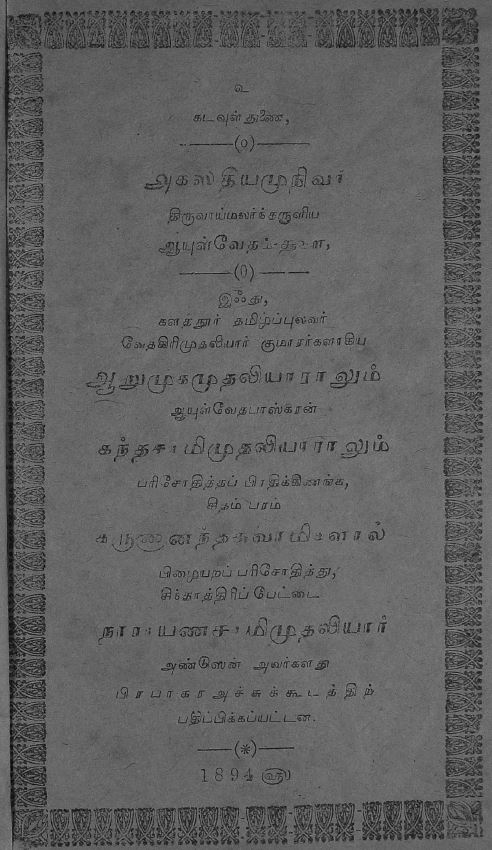 உ
கடவுள் துணை,
(0)
அகஸ்தியமுநிவர்
திருவாய்மலர்ந்தருளிய
ஆயுள்வேதம்
(0)
இஃது,
களத்தூர் தமிழ்ப்புலவர்
வேதகிரிமுதலியார் குமாரர்களாகிய
ஆறுமுகமுதலியாராலும்
ஆயுள்வேதபாஸ்கரன்
கந்தசாமிமுதலியாராலும்
பரிசோதித்தப் பிரதிக்கிணங்க,
சிதம் பரம்
கருணானந்தசுவாமிகளால்
பிழையறப் பரிசோதித்து,
சிந்தாத்திரிப் பேட்டை
நாராயணசாமிமுதலியார்
அண்டுஸன் அவர்களது
பிரபாகரஅச்சுக்கூடத்திற்
பதிப்பிக்கப்பட்டன.
(*)
1894 ௵